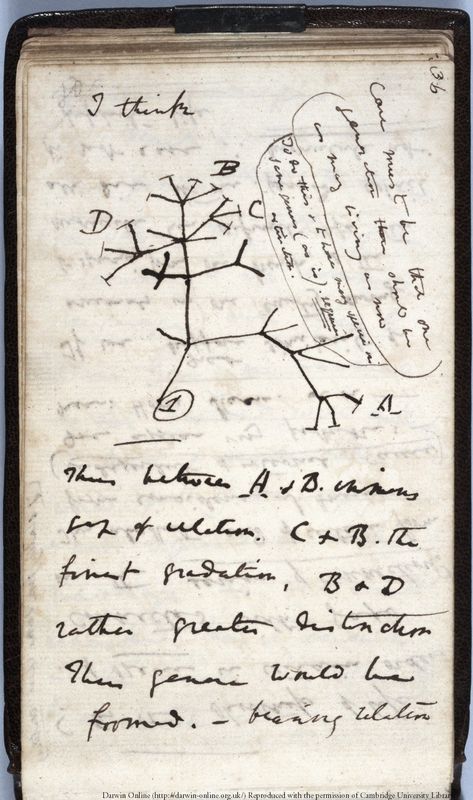 36
I think
Case must be that one
generation then should be
as many living as now
To do this & to have many species in
same genus (as is). requires
extinction.
B
D
C
A
1
Thus between A & B. immense
gap of relation. C & B. the
finest gradation, B & D
rather greater distinction
Thus genera would be
formed. — bearing relation
Darwin Online (http://darwin-online.org.uk/) Reproduced with the permission of Cambridge University Library